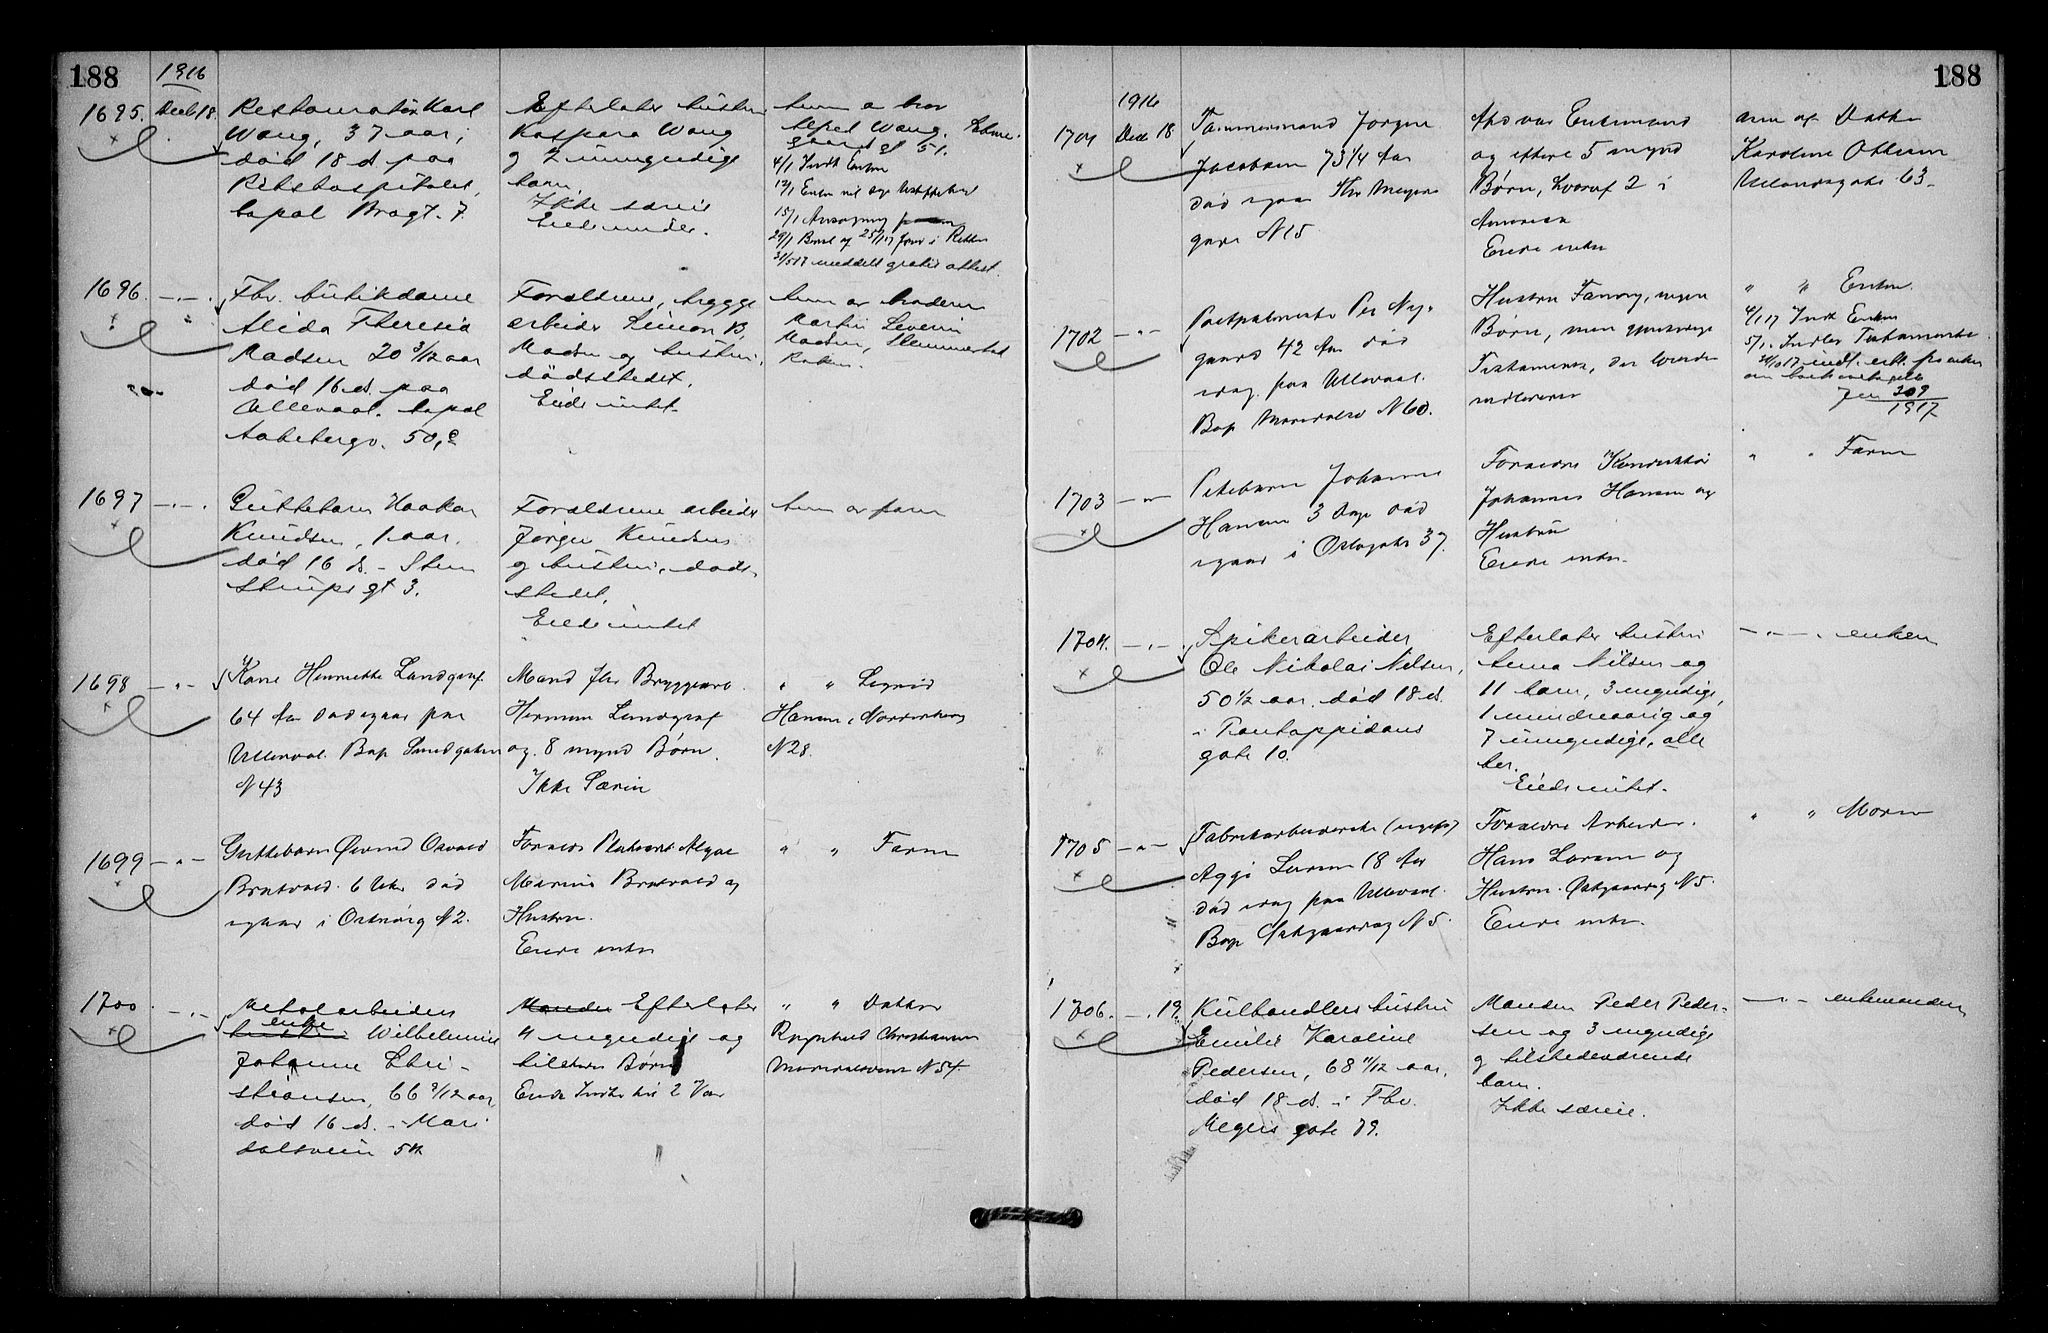 188
1916
1695. Decbr 18.
Restauratør Karl
Wang, 37 aar,
død 18 ds paa
Rikshospitalet,
bopæl Bragt. 7.
Efterlater hustru
Kaspara Wang
og 2 umyndige
barn.
Ikke særeie
Eiendeler.
Anm av bror
Wang,
gt 51.
4/1 Indk Enken
12/1 Enken vil
15/1 Ansøgning
29/1 Bevil af 25/1 17 i Retten
31/5 17 meddelt gratis attest.
1696. — " —
Fhv. butikdame
Alida Theresia
Madsen 20 3/12 aar
død 16 ds. paa
Ullevaal. bopæl
Aakebergv. 50, c
Forældrene, brygge
arbeider Simon B.
Madsen og hustru,
dødsstedet.
Eiede intet.
Anm av broderen
Martin Severin
Madsen,
1697 — " —
Guttebarn Haakon
Knudsen, 1 aar,
død 16 ds. - Sten
strups gt 3.
Forældrene arbeider
Jørgen Knudsen
og hustru, døds-
stedet.
Eiede intet
Anm av faren
1698 — " —
Kone Henriette Lundgraf
64 Aar død igaar paa
Ullevaal. Bop Smedgaten
N 43
Mand fhv Bryggearb.
Herman Lundgraf
og 8 mynd Børn.
Ikke Særeie
" "
Hansen, Nordenberg
N 28.
1699 — " —
Guttebarn Øivind Osvald
Bratvold 6 Uker død
igaar i N 2.
Forældre
Marius Bratvold og
Hustru.
Eiede intet
" " Faren
1700 — " —
Metalarbeiders
hustru enke Wilhelmine
Johanne Chri-
stiansen, 66 9/12 aar,
død 16 ds. - Mari
dalsveien 54
Manden Efterlater
4 myndige og
tilstedev Børn
" " Datter
Ragnhild Christiansen
Maridalsveien N 54
188
1916
1701 Decbr 18
Tømmermand Jørgen
Jacobsen 73 1/4 Aar
død igaar Thv Meyers
gade N 15
Afd var Enkemand
og efterl 5 mynd
Børn, hvoraf 2 i
Amerika
Eiede intet
Anm af Datter
Karoline Ottesen
Uelandsgate 63.
1702 — " —
Postpakmester Per Ny-
gaard 42 Aar død
idag paa Ullevaal.
Bop Maridalsv N 60.
Hustru Fanny, ingen
Børn, men gjensidige
Testamente, der
indleveres
" " Enken.
4/1 17 Indk Enken
5/1. Indlev Testamente
Jen 309
1917
1703 — " —
Pikebarn Johanne
Hansen 3 Dage død
igaar i Oslogate 37.
Forældre Konduktør
Johannes Hansen og
Hustru
Eiede intet.
" " Faren
1704. — " —
Spikerarbeider
Ole Nikolai Nilsen,
50 1/2 aar, død 18 ds.
i Pontoppidans
gate 10.
Efterlater hustru
Anna Nilsen og
11 barn, 3 myndige,
1 mindreaarig og
7 umyndige, alle
her.
Eiede intet.
— " — enken
1705 — " —
Fabrikarbeiderske (ugift)
Aggi Larsen 18 Aar
død idag paa Ullevaal.
Bop N 5.
Forældre Arbeider
Hans Larsen og
Hustru. N 5.
Eiede intet.
" " Moren
1706. — " 19.
Kulhandlers hustru
Emilie Karoline
Pedersen, 68 11/12 aar,
død 18 ds. i Thv.
Meyers gate 79.
Manden Peder Peder-
sen og 3 myndige
og tilstedeværende
barn.
Ikke særeie.
— " — enkemanden